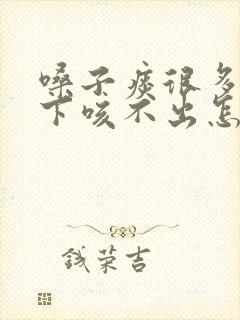 嗓子痰很多
下咳不出怎
钱荣吉